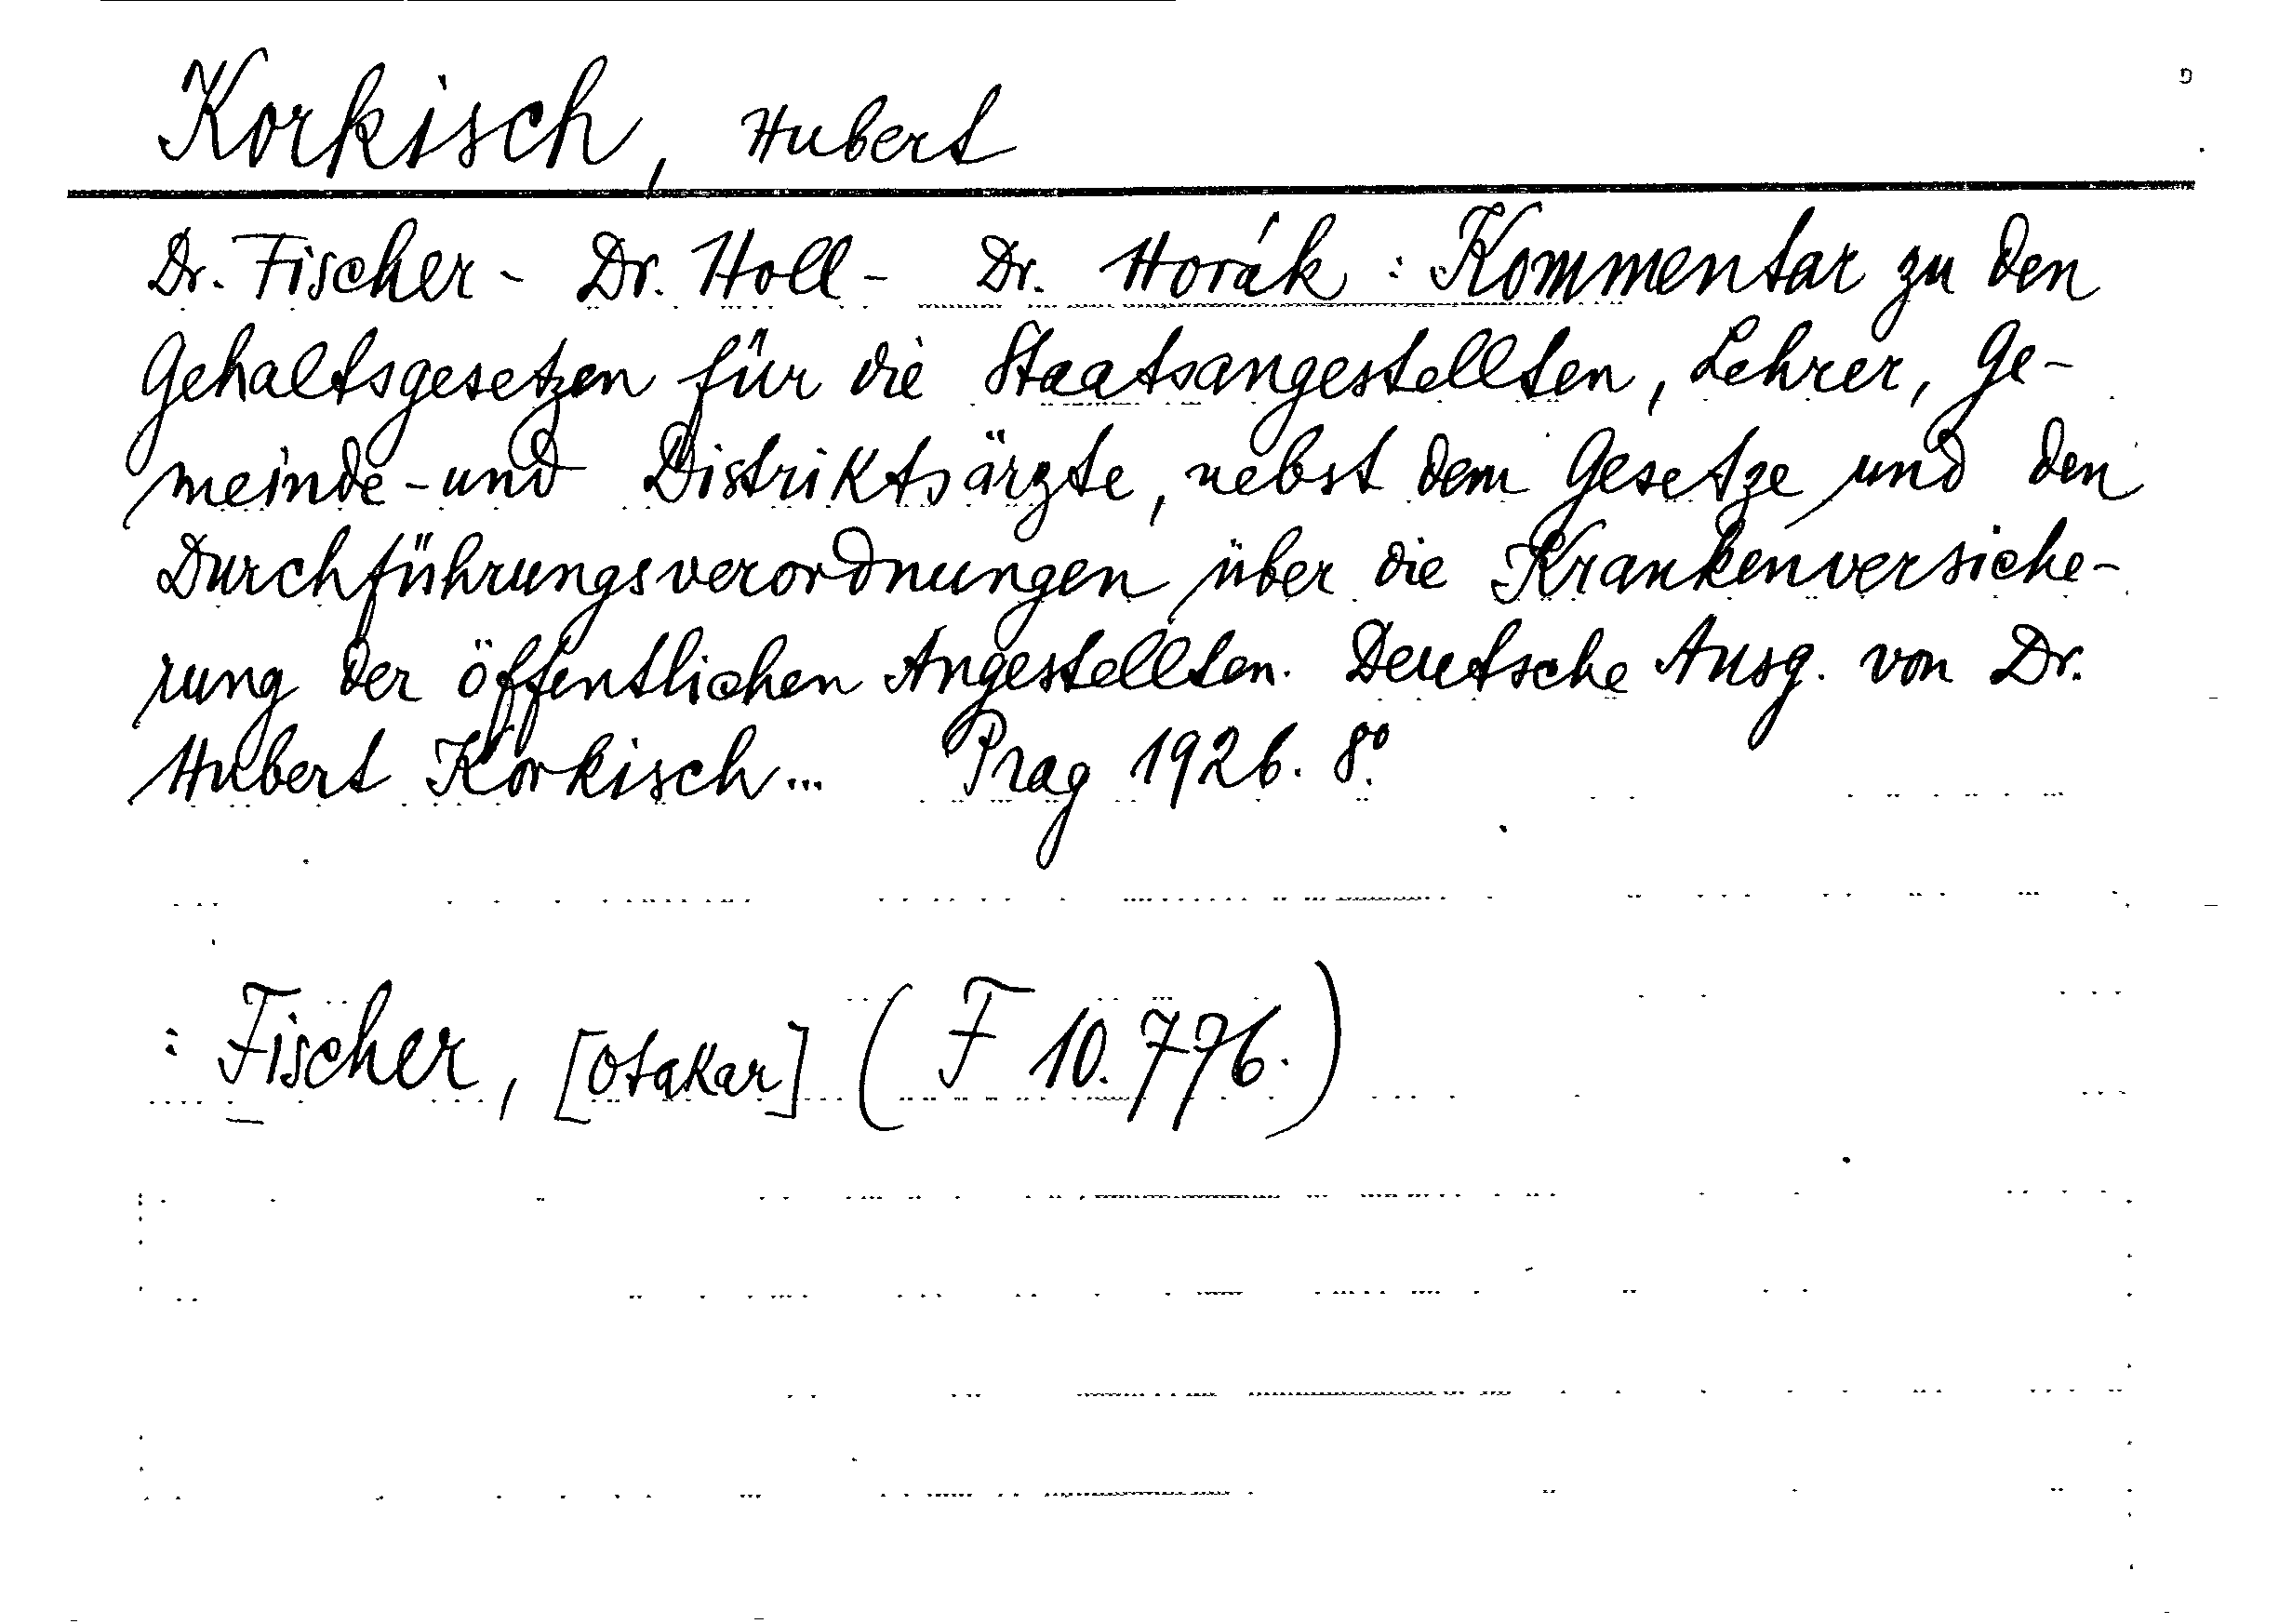 Korkisch, Hubert
Dr. Fischer - Dr. Holl - Dr. Horák : Kommentar zu den
Gehaltsgesetzen für die Staatsangestellten, Lehrer, Ge-
meinde - und Distriktsärzte, nebst dem Gesetze und den
Durchführungsverordnungen über die Krankenversiche-
rung der öffentlichen Angestellten. Deutsche Ausg. von Dr.
Hubert Korkisch... Prag 1926. 8°.
: Fischer, [Otakar] (F 10.776.)